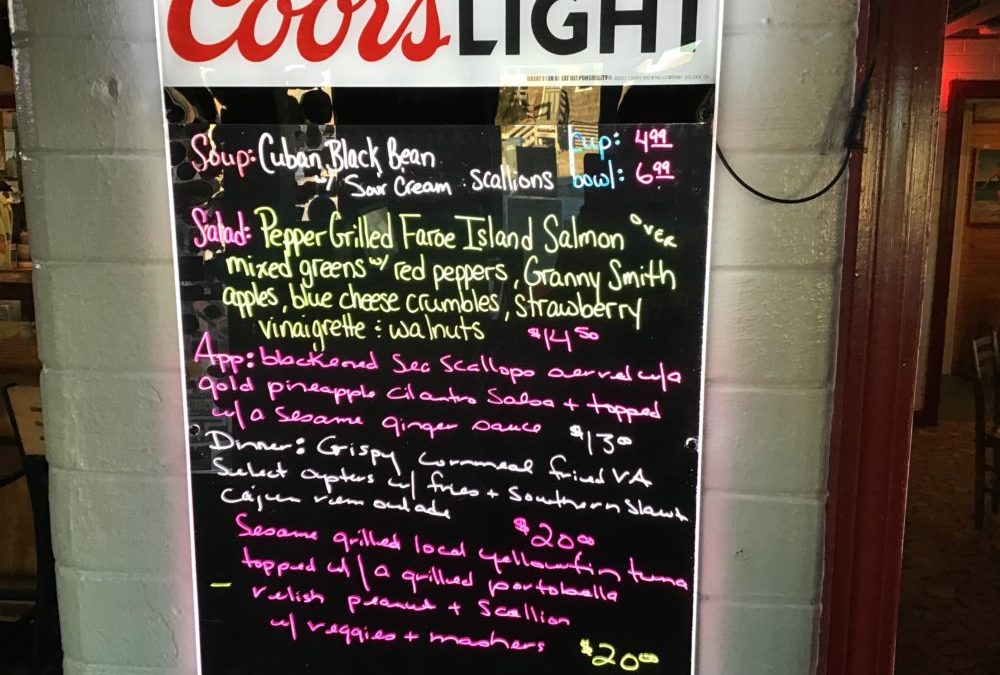 Coors LIGHT
GREAT BEER GREAT RESPONSIBILITY® COORS BREWING COMPANY, GOLDEN, CO
Soup: Cuban Black Bean Cup: 4.99
w/ Sour Cream : Scallions bowl: 6.99
Salad: Pepper Grilled Faroe Island Salmon OVER
mixed greens w/ red peppers, Granny Smith
apples, blue cheese crumbles, strawberry
vinaigrette : walnuts $14.50
App: blackened Sea Scallops served w/a
gold pineapple Cilantro Salsa + topped
w/ a Sesame ginger sauce $13.00
Dinner: Crispy Cornmeal fried VA
Select oysters w/ fries + Southern Slaw +
Cajun remoulade $20.00
Sesame grilled local yellowfin tuna
topped w/ a grilled portobella
relish peanut + Scallion
w/ veggies + mashers $20.00